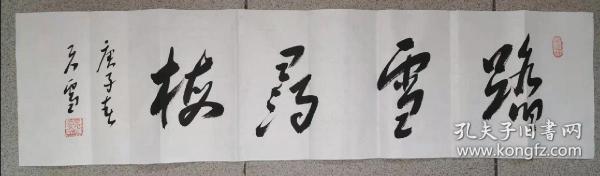 踏雪寻梅
庚子春
天雪
孔夫子旧书网
www.kongfz.com